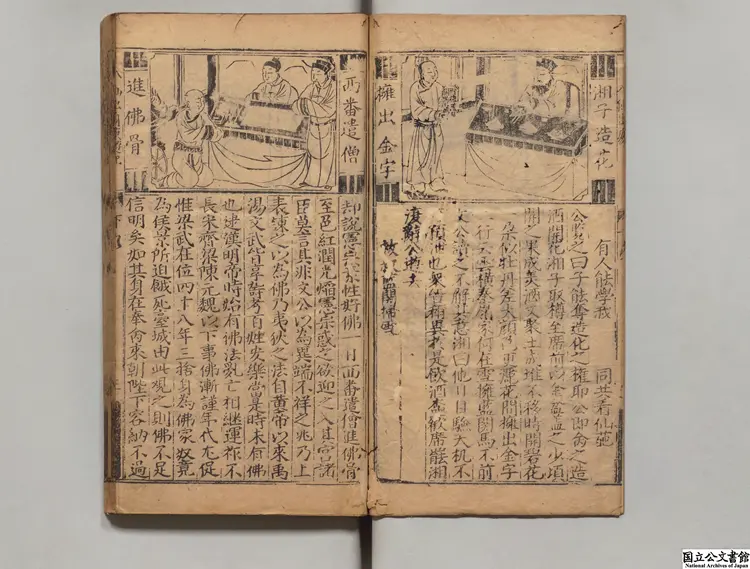 湘子造花
擁出金字
有人能學我　同共看仙葩
公覽之曰子能奪造化之權耶公即命之造
酒開花湘子取樽至席前以金盆蓋之少頃
開之果成美酒又聚土成堆不移時開碧花
朵似牡丹差大顏色更麗花間擁出金字
一行云雲橫秦嶺家何在雪擁藍關馬不前
文公讀之不解其意湘曰他日自驗天機不
預泄也衆皆稱異於是飲酒盡歡席罷湘
辭公而去
藍關
西番遣僧
進佛骨
却說憲宗性好佛一日西番遣僧進佛骨
至邑紅潤光焰憲宗惑之欲迎之入其宮諸
臣莫言其非文公以為異端不祥之兆乃上
表諫之以為佛乃夷狄之法自黃帝以來禹
湯文武皆享壽考百姓安樂當是時未有佛
也逮漢明帝時始有佛法亂亡相繼運祚不
長宋齊梁陳元魏以下事佛漸謹年代尤促
惟梁武在位四十八年三捨身為佛家奴竟
為侯景所迫餓死臺城由此觀之則佛不足
信明矣如其身在奉命來朝陛下容納不過
国立公文書館
National Archives of Japan